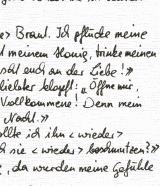 e> Braut. Ich pflücke meine
t meinem Honig, trinke meinen
scht euch an der Liebe!»
eliebter klopft: «Öffne mir,
Vollkommene! Denn mein
Nacht.»
ollte ich ihn <wieder>
ch sie <wieder> beschmutzen?»
, da wurden meine Gefühle